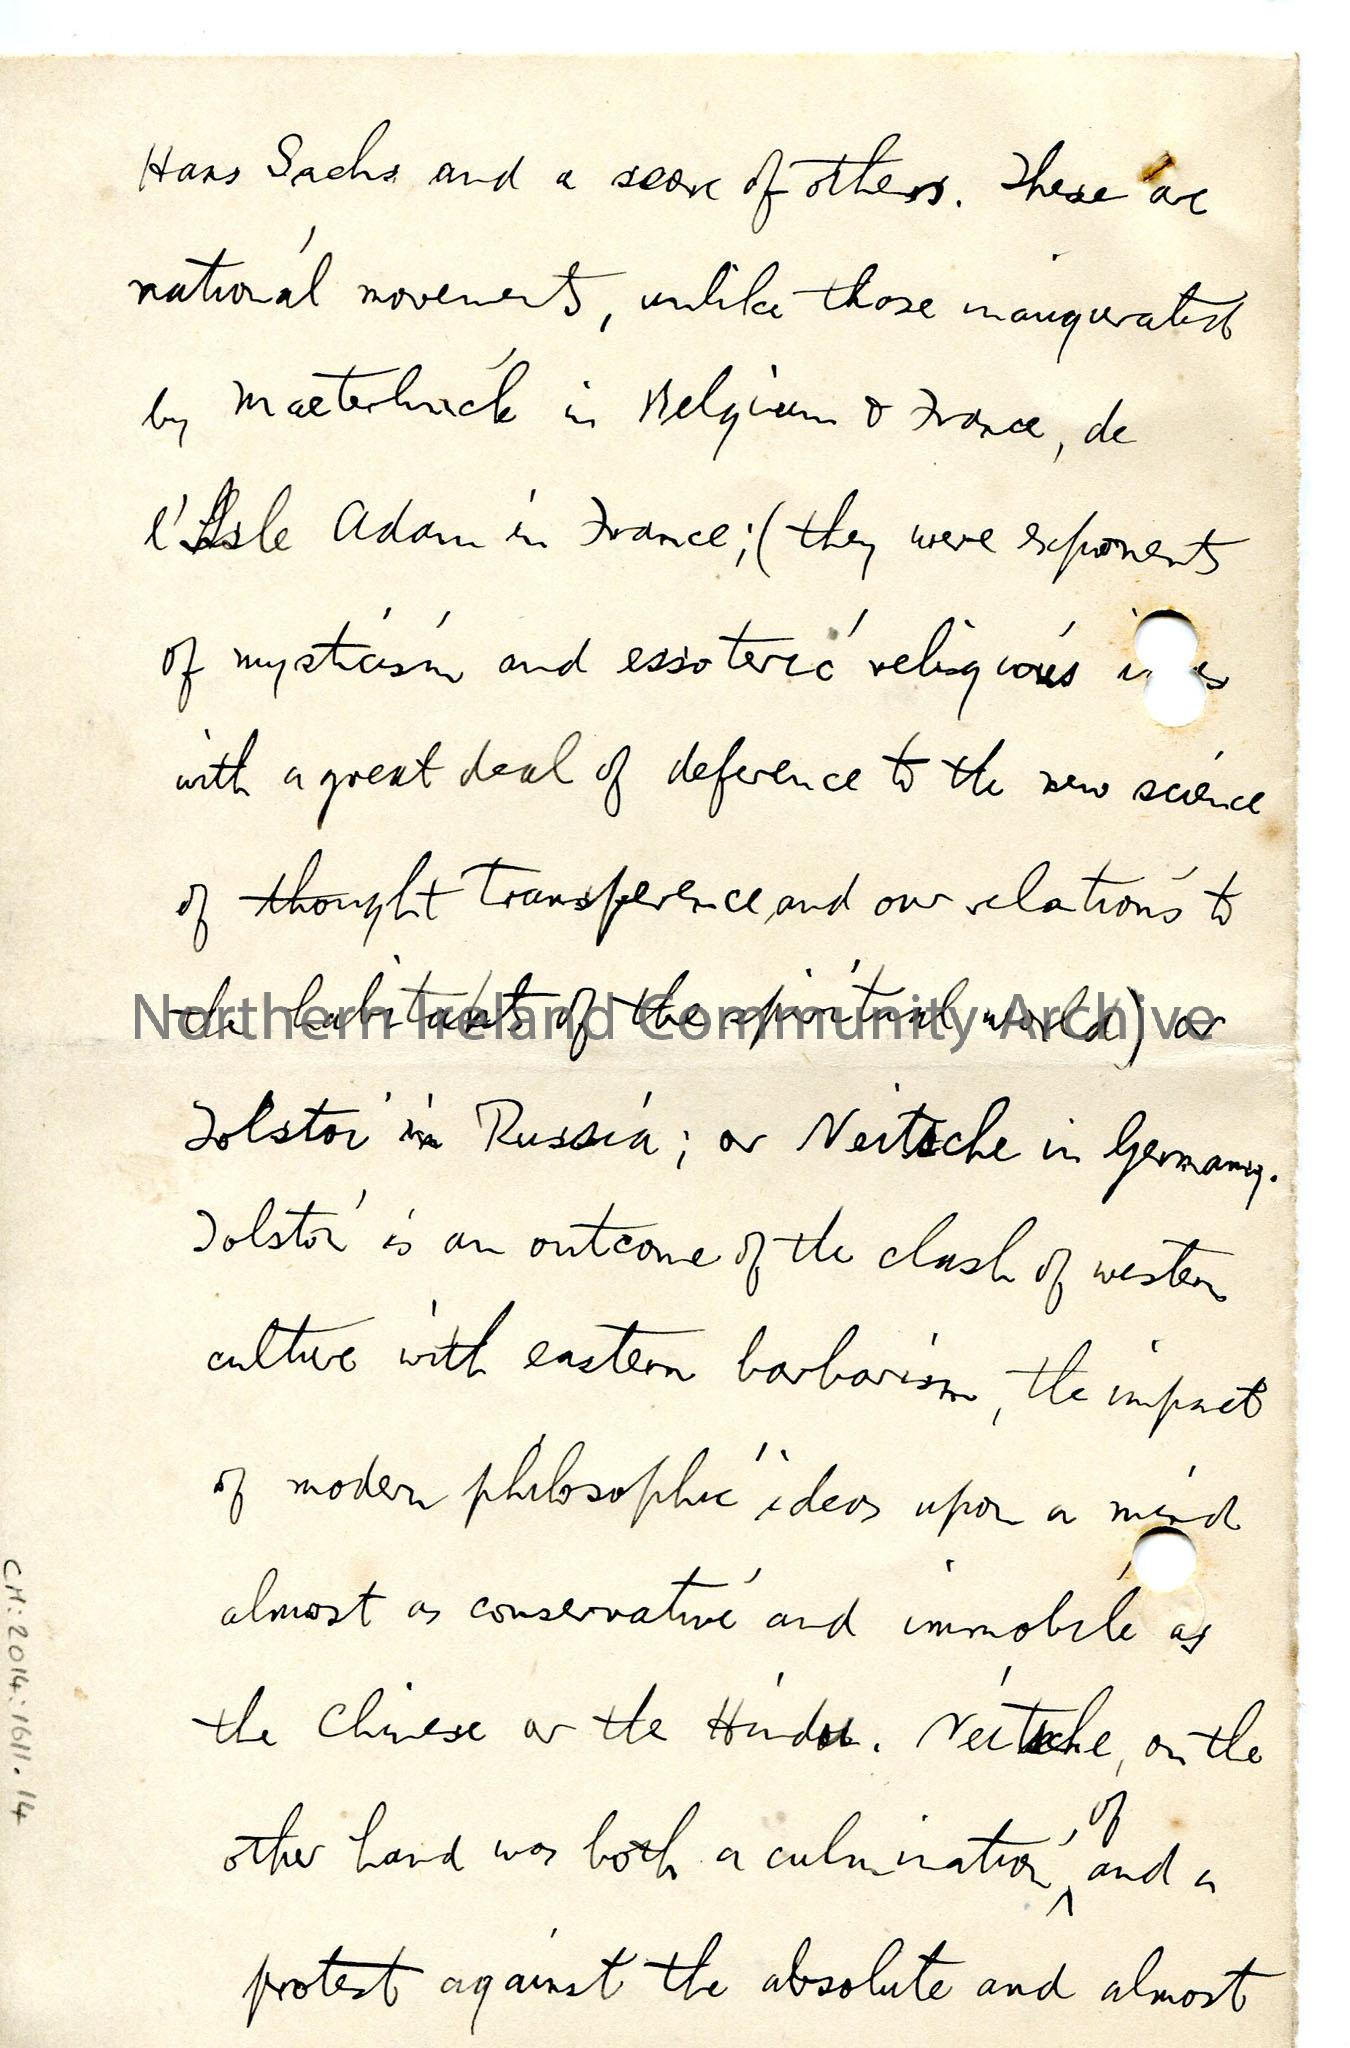 Hans Sachs and a score of others. These are
national movements, unlike those inaugurated
by Maeterlinck in Belgium & France, de
l'Isle Adam in France; (they were exponents
of mysticism and essoteric religious i es
with a great deal of deference to the new science
of thought transference, and our relations to
the habitants of the spiritual world) or
Northern Ireland Community Archive
Tolstoi in Russia; or Neitsche in Germany.
Tolstoi is an outcome of the clash of western
culture with eastern barbarism, the impact
of modern philosophic ideas upon a mind
almost as conservative and immobile as
the Chinese or the Hindu. Neitsche, on the
other hand was both a culmination, of and a
protest against the absolute and almost
CM:2014:1611.14